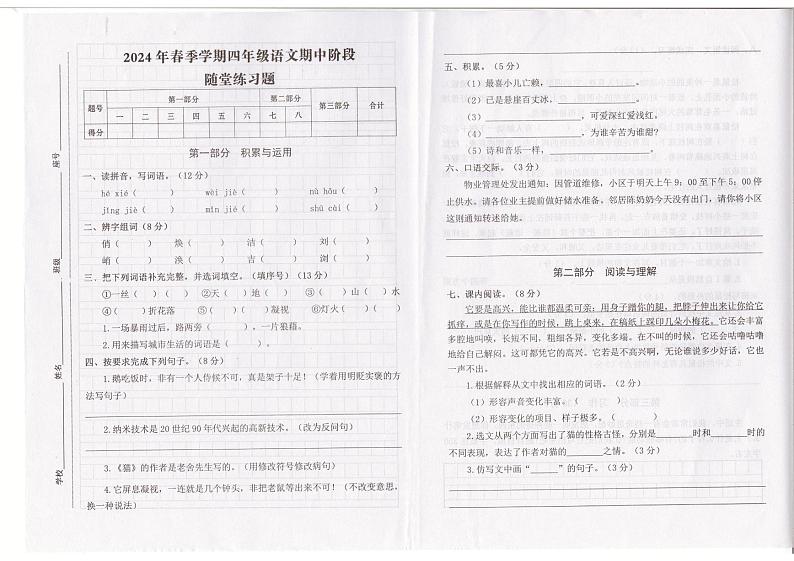 2024 年春季学期四年级语文期中阶段
随堂练习题
题号 第一部分 第二部分 第三部分 合计
一 二 三 四 五 六 七 八
得分
第一部分 积累与运用
一、读拼音，写词语。（12 分）
hé xié（ ） wèi jiè（ ） nǔ hǒu（ ）
jīng jiè（ ） mǐn jié（ ） shū cài（ ）
二、辨字组词（8 分）
俏（ ） 焕（ ） 洁（ ） 刘（ ）
峭（ ） 涣（ ） 吉（ ） 浏（ ）
三、把下列词语补充完整，并选词填空。（填序号）（13 分）
①一丝（ ）（ ） ②天（ ）地（ ） ③（ ）山（ ）水
④（ ）折花落 ⑤（ ）（ ）凝视 ⑥灯火（ ）（ ）
1.一场暴雨过后，路两旁（ ），一片狼藉。
2.用来描写城市生活的词语是（ ）。
四、按要求完成下列句子。（8 分）
1.鹅吃饭时，非有一个人侍候不可，真是架子十足！（学着用明贬实褒的方
法写句子）
2.纳米技术是 20 世纪 90 年代兴起的高新技术。（改为反问句）
3.《猫》的作者是老舍先生写的。（用修改符号修改病句）
4.它屏息凝视，一连就是几个钟头，非把老鼠等出来不可！（不改变意思，
换一种说法）
学校 姓名 班级 座号
五、积累。（5 分）
（1）最喜小儿亡赖，____________。
（2）已是悬崖百丈冰，____________。
（3）____________，可爱深红爱浅红。
（4）____________，为谁辛苦为谁甜？
（5）诗和音乐一样，____________。
六、口语交际。（3 分）
物业管理处发出通知：因管道维修，小区于明天上午 9：00 至下午 5：00 停
止供水。请各位业主提前做好储水准备。邻居陈奶奶今天没有出门，请你将小区
这则通知转述给她。
第二部分 阅读与理解
七、课内阅读。（8 分）
它要是高兴，能比谁都温柔可亲：用身子蹭你的腿，把脖子伸出来让你给它
抓痒，或是在你写作的时候，跳上桌来，在稿纸上踩印几朵小梅花。它还会丰富
多腔地叫唤，长短不同，粗细各异，变化多端。在不叫的时候，它还会咕噜咕噜
地给自己解闷。这可都凭它的高兴。它若是不高兴啊，无论谁说多少好话，它也
一声不出。
1.根据解释从文中找出相应的词语。（2 分）
（1）形容声音变化丰富。（ ）
（2）形容变化的项目、样子极多。（ ）
2.选文从两个方面写出了猫的性格古怪，分别是______时和______时的
不同表现，表达了作者对猫的______之情。（3 分）
3.仿写文中画“______”的句子。（3 分）